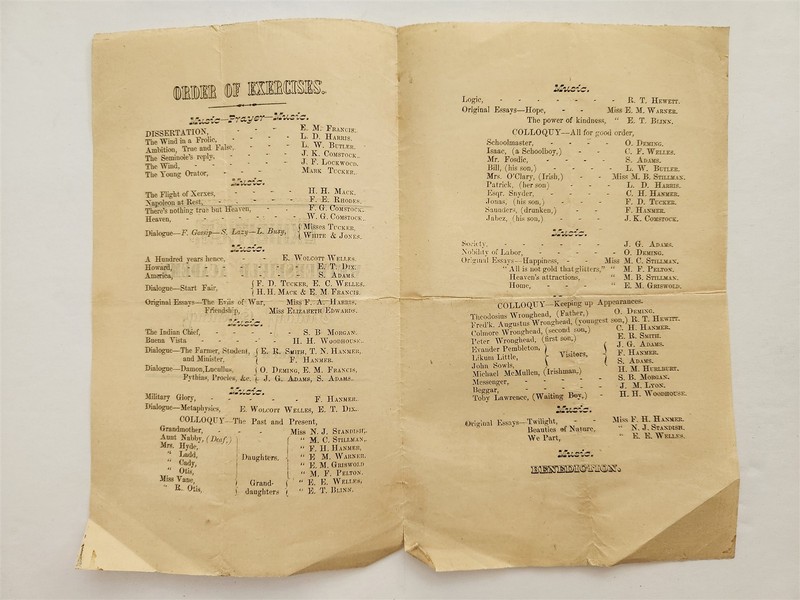 ORDER OF EXERCISES.
Music—Prayer—Music.
DISSERTATION, - - - E. M. FRANCIS.
The Wind in a Frolic, - - - - L. D. HARRIS.
Ambition, True and False, - - - L. W. BUTLER.
The Seminole's reply, - - - - J. K. COMSTOCK.
The Wind, - - - - - J. F. LOCKWOOD.
The Young Orator, - - - - MARK TUCKER.
Music.
The Flight of Xerxes, - - - - H. H. MACK.
Napoleon at Rest, - - - - F. E. RHODES.
There's nothing true but Heaven, - - F. G. COMSTOCK.
Heaven, - - - - - - W. G. COMSTOCK.
Dialogue—F. Gossip—N. Lazy—L. Busy, { MISSES TUCKER,
WHITE & JONES.
Music.
A Hundred years hence, - - E. WOLCOTT WELLES.
Howard, - - - - - - E. T. DIX.
America, - - - - - - S. ADAMS.
Dialogue—Start Fair, { F. D. TUCKER, E. C. WELLES.
H. H. MACK & E. M FRANCIS.
Original Essays—The Evils of War, Miss F. A. HARRIS,
Friendship, Miss ELIZABETH EDWARDS.
Music.
The Indian Chief, - - - - - S. B MORGAN.
Buena Vista - - - - H. H. WOODHOUSE.
Dialogue—The Farmer, Student, { E. R. SMITH, T. N. HANMER,
and Minister, { F. HANMER.
Dialogue—Damon, Lucullus, { O. DEMING, E. M. FRANCIS,
Pythins, Procles, &c. { J. G. ADAMS, S. ADAMS.
Music.
Military Glory, - - - - - F. HANMER.
Dialogue—Metaphysics, E. WOLCOTT WELLES, E. T. DIX.
COLLOQUY—The Past and Present,
Grandmother, - - - Miss N. J. STANDISH,
Aunt Nabby, (Deaf,) " M. C. STILLMAN,
Mrs. Hyde, " F. H. HANMER,
" Ladd, Daughters. " E M. WARNER.
" Cady, " E. M. GRISWOLD
" Otis, " M. F. PELTON.
Miss Vane, } Grand- { " E. E. WELLES,
" R. Otis, } daughters { " E. T. BLINN.
Music.
Logic, - - - - - - - R. T. HEWITT.
Original Essays—Hope, - - Miss E. M. WARNER.
The power of kindness, " E. T. BLINN.
COLLOQUY—All for good order,
Schoolmaster, - - - - O. DEMING.
Isaac, (a Schoolboy,) - - - C. F. WELLES.
Mr. Fosdic, - - - - S. ADAMS.
Bill, (his son,) - - - - L. W. BUTLER.
Mrs. O'Clary, (Irish,) - - Miss M. B. STILLMAN.
Patrick, (her son) - - - L. D. HARRIS.
Esqr. Snyder, - - - - C. H. HANMER.
Jonas, (his son,) - - - F. D. TUCKER.
Saunders, (drunken,) - - - F. HANMER.
Jabez, (his son,) - - - J. K. COMSTOCK.
Music.
Society, - - - - - - J. G. ADAMS.
Nobility of Labor, - - - - - O. DEMING.
Original Essays—Happiness, - - Miss M. C. STILLMAN.
"All is not gold that glitters," " M. F. PELTON.
Heaven's attractions, " M. B. STILLMAN.
Home, - - - " E. M. GRISWOLD.
COLLOQUY—Keeping up Appearances.
Theodosius Wronghead, (Father,) O. DEMING.
Fred'k. Augustus Wronghead, (youngest son,) R. T. HEWITT.
Colmore Wronghead, (second son,) C. H. HANMER.
Peter Wronghead, (first son,) E. R. SMITH.
Evander Pembleton, } { J. G. ADAMS.
Likum Little, } Visitors, { F. HANMER.
John Sowls, } { S. ADAMS.
Michael McMullen, (Irishman,) H. M. HURLBURT.
Messenger, - - - - - S. B. MORGAN.
Beggar, - - - - - J. M. LYON.
Toby Lawrence, (Waiting Boy,) - H. H. WOODHOUSE.
Music.
Original Essays—Twilight, - - Miss F. H. HANMER.
Beauties of Nature, " N. J. STANDISH.
We Part, " E. E. WELLES.
Music.
BENEDICTION.